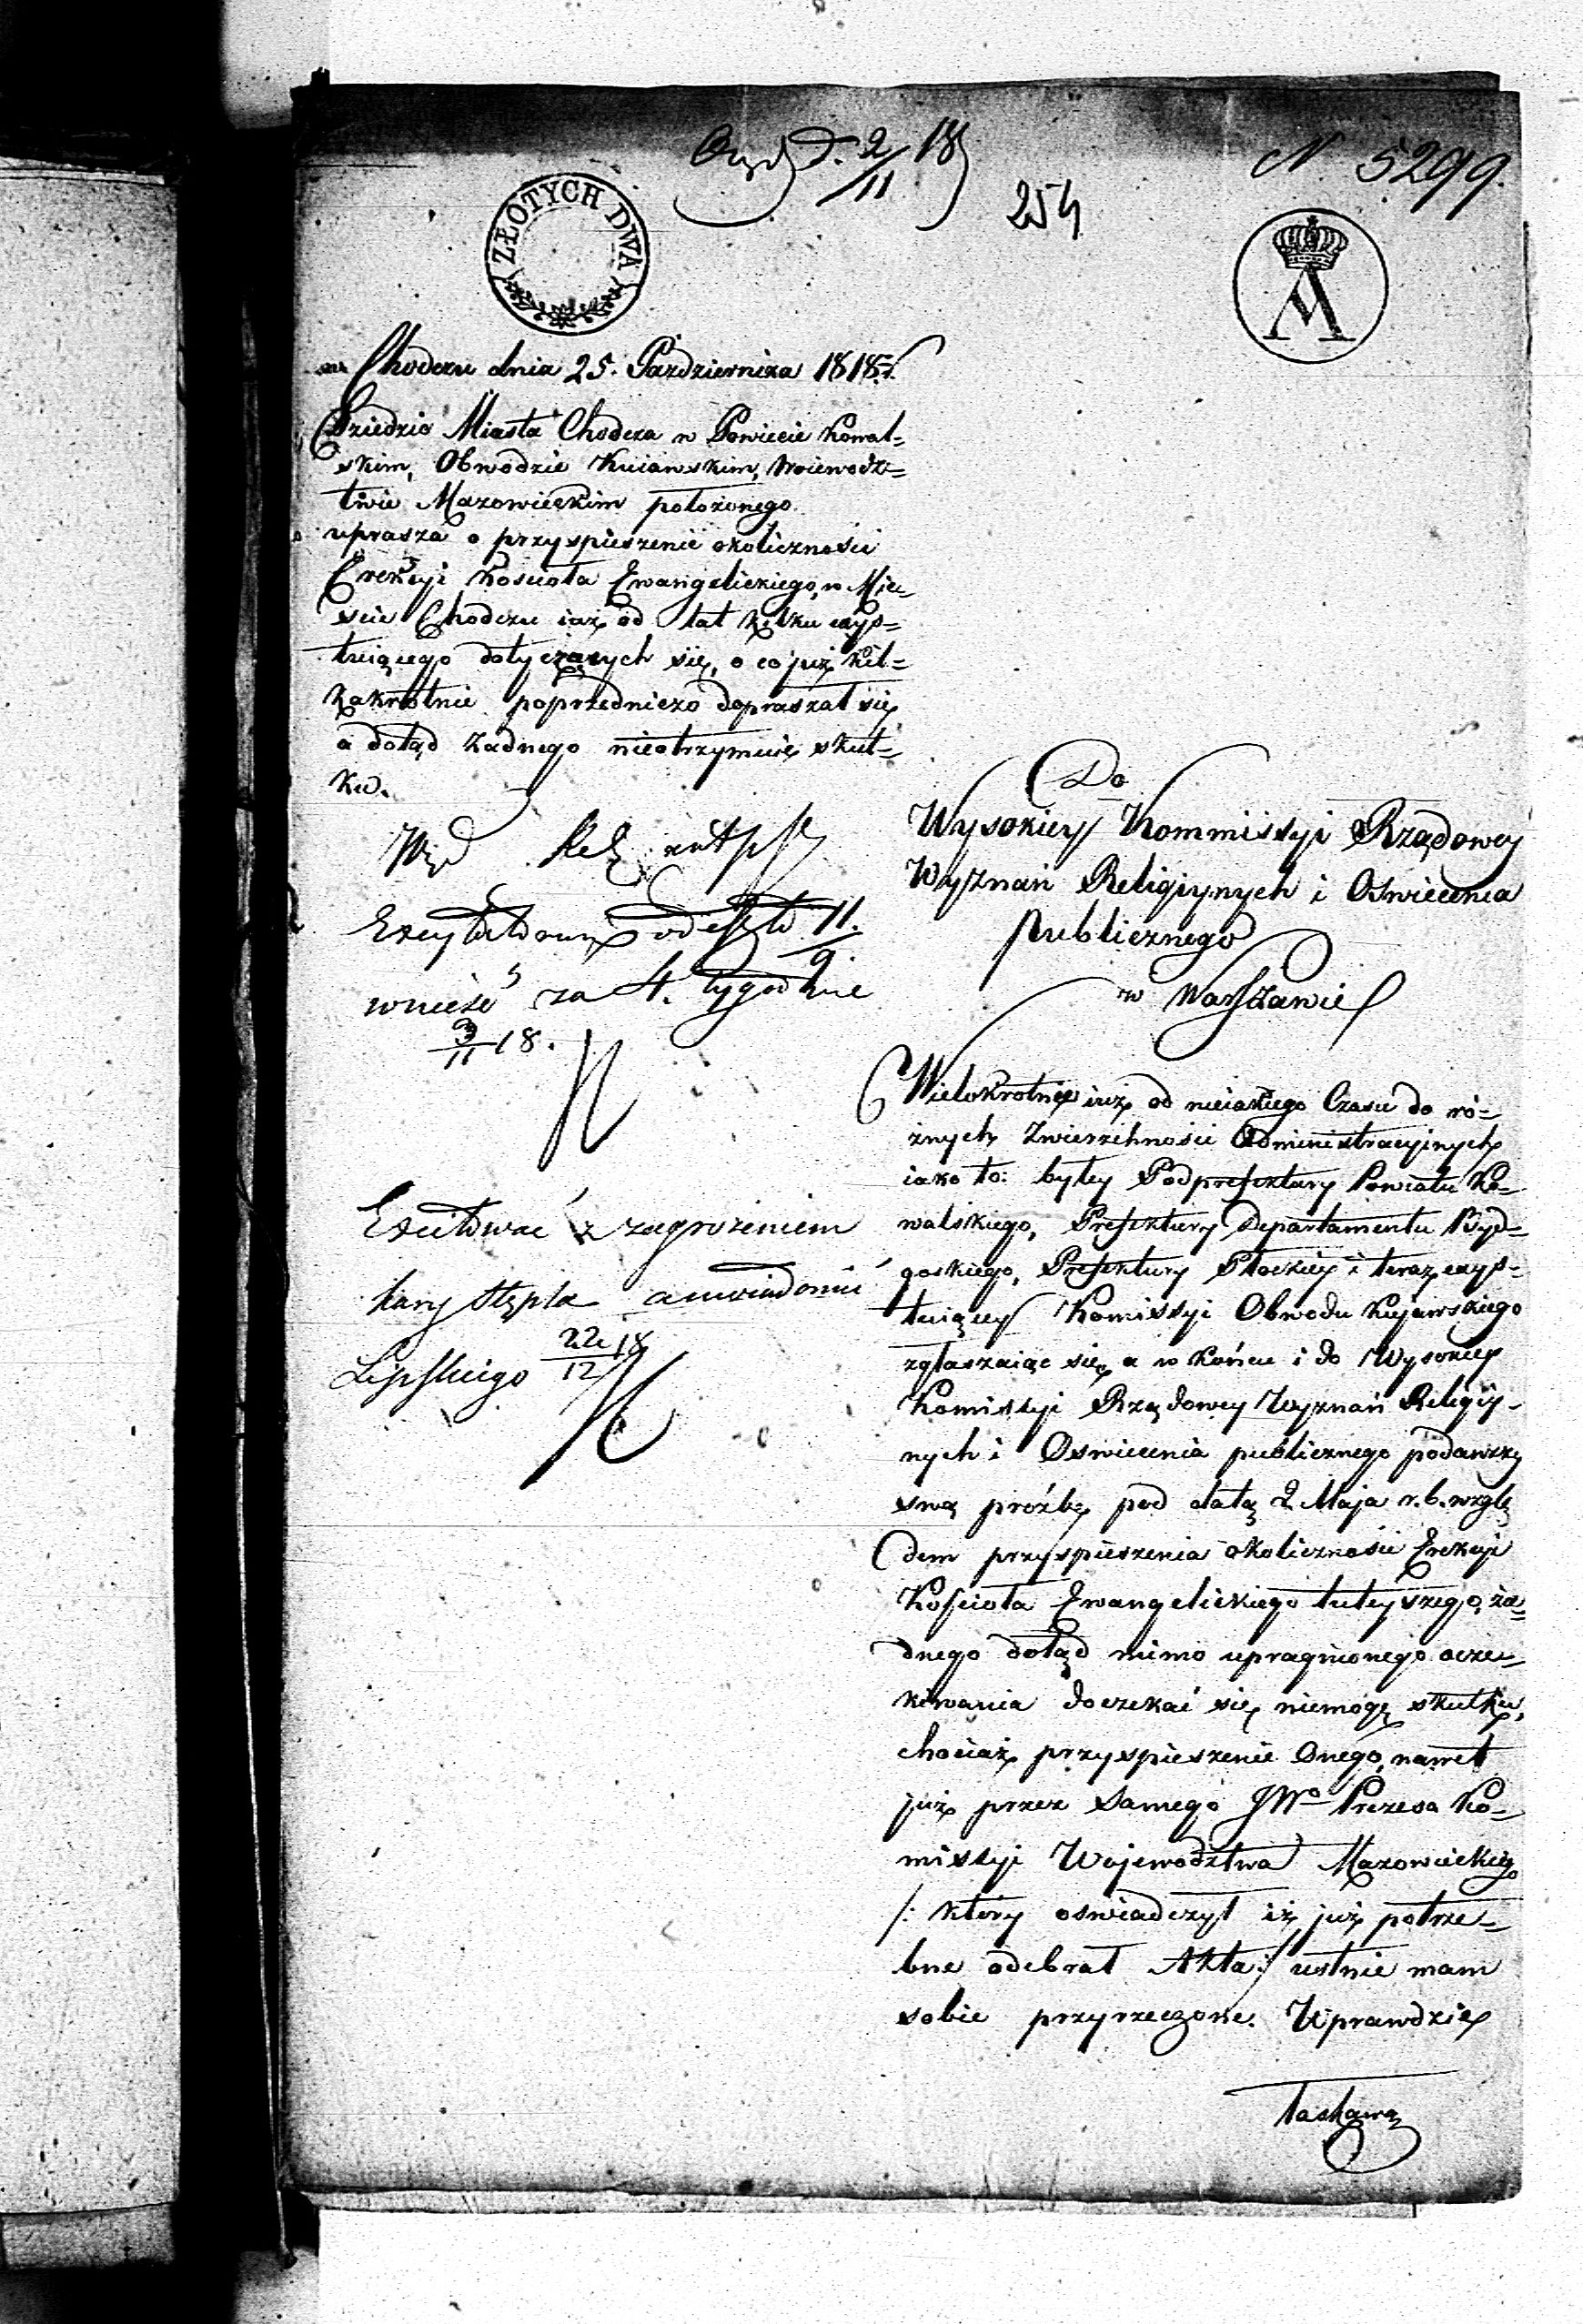 d. 2/11 18
N 5299.
254
ZŁOTYCH DWA
A
w Chodczu dnia 25. Pazdziernika 1818. r.
Dziedzic Miasta Chodcza w Powiecie Kowal=
skim, Obwodzie Kuiawskim, Woiewodz=
twie Mazowieckim położonego
uprasza o przyspieszenie okoliczności
Erekcyi Kościoła Ewangelickiego, w Mie=
ście Chodczu iuż od lat kilku exys=
tuiącego dotyczących się, o co już kil=
kakrotnie poprzedniczo dopraszał się
a dotąd żadnego nieotrzymuie skut=
ku.
Excytatorium odeszło 11/9.
wnieść za 4. tygodnie
3/11 18.
Excitować z zagrożeniem
kary stępla a uwiadomić
Lipskiego 22/12 18
Do
Wysokiey Kommissyi Rządowey
Wyznań Religiynych i Oswiecenia
Publicznego
w Warszawie
Wielokrotnie iuż od nieiakiego Czasu do ró=
żnych Zwierzchności Administracyinych
iako to: byłey Podprefektury Powiatu Ko=
walskiego, Prefektury Departamentu Byd=
goskiego, Prefektury Płockiey i teraz exys=
tuiącey Komissyi Obwodu Kujawskiego
zgłaszaiąc się, a w końcu i do Wysokiey
Komissyi Rządowey Wyznań Religiy=
nych i Oswiecenia publicznego podawszy
swą proźbę pod datą 2. Maja r. b. wzglę
dem przyspieszenia okoliczności Erekcyi
Kościoła Ewangelickiego tuteyszego, ża=
dnego dotąd mimo upragnionego ocze=
kiwania doczekać się niemogę skutku,
chociaż przyspieszenie Onego, nawet
już przez Samego JWo Prezesa Ko=
missyi Wojewodztwa Mazowieckiego
/: który oswiadczył iż już potrze=
bne odebrał Akta :/ ustnie mam
sobie przyrzeczone. Wprawdzie
łaskawą